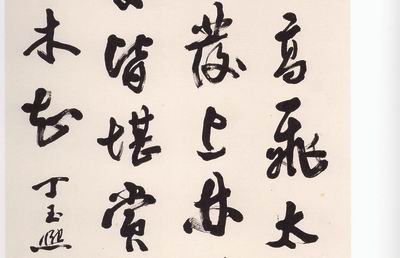 高飛太
發上林
皆堪賞
木知
丁玉熙